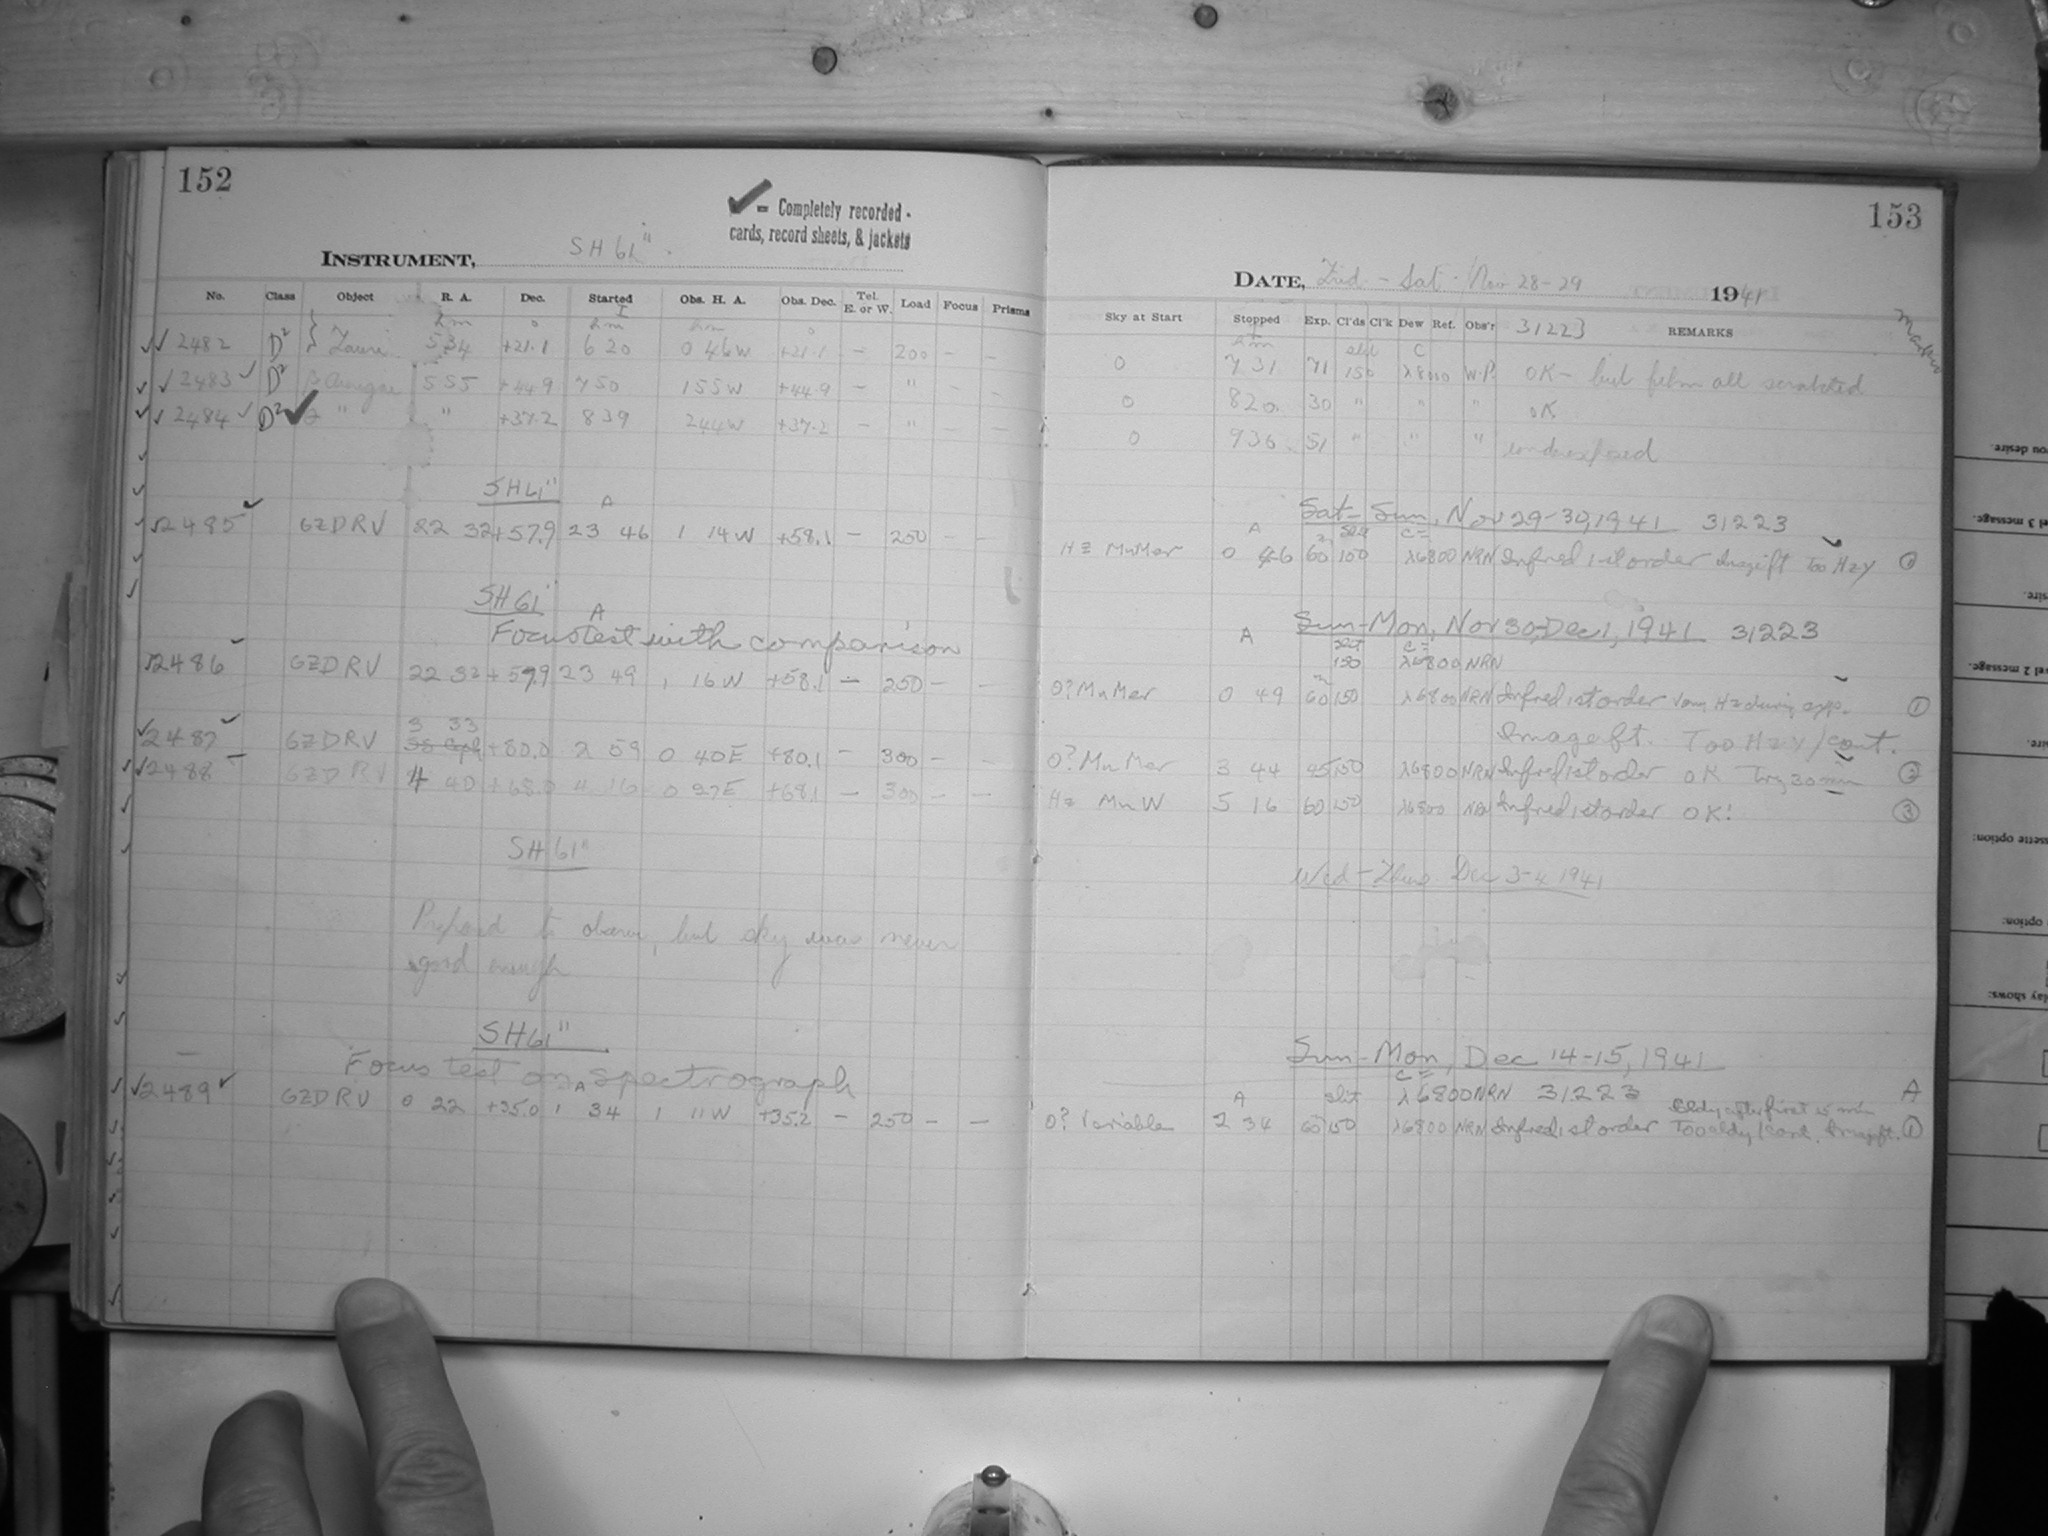 152
✓ = Completely recorded -
cards, record sheets, & jackets
INSTRUMENT, SH 61"
No. Class Object R. A. Dec. Started Obs. H. A. Obs. Dec. Tel. E. or W. Load Focus Prisms
h m ° h m h m °
2482 D² Tauri 5 34 +21.1 6 20 0 46W +21.1 - 200 - -
2483 D² 5 55 +44.9 7 50 1 55W +44.9 - " - -
2484 D² " " +37.2 8 39 2 44W +37.2 - " - -
SH61"
A
2485 GZDRV 22 32 +57.9 23 46 1 14W +58.1 - 250 - -
SH 61"
A
Focus test with comparison
2486 GZDRV 22 32 +57.9 23 49 1 16W +58.1 - 250 - -
3 33
2487 GZDRV +80.0 2 59 0 40E +80.1 - 300 - -
2488 GZDRV 4 40 +68.0 4 16 0 27E +68.1 - 300 - -
SH 61"
Prepared to observe, but sky was never
good enough
SH61"
Focus test on spectrograph
A
2489 GZDRV 0 22 +35.0 1 34 1 11W +35.2 - 250 - -
153
DATE, Frid - Sat. Nov 28-29 1941
Sky at Start Stopped Exp. Cl'ds Cl'k Dew Ref. Obs'r 31223 REMARKS
h m slit C
0 7 31 71 150 λ8000 W.P. OK - but film all scratched
0 8 20 30 " " " OK
0 9 36 51 " " " underexposed
Sat-Sun, Nov 29-30, 1941 31223
A slit C=
Hz MnMer 0 46 60 150 λ6800 NRN Infred 1st order Imageft Too Hzy ①
Sun-Mon, Nov 30-Dec 1, 1941 31223
A slit C=
150 λ6800 NRN
0? MnMer 0 49 60 150 λ6800 NRN Infred 1st order Very Hz during exp.  ①
Imageft. Too Hzy/cont.
0? MnMer 3 44 45 150 λ6800 NRN Infred 1st order OK Try 30 min ②
Hz MnW 5 16 60 150 λ6800 NRN Infred 1st order OK! ③
Wed-Thurs Dec 3-4 1941
Sun-Mon, Dec 14-15, 1941
C=
A slit λ6800 NRN 31223 A
Cldy after first 15 min
0? Variable 2 34 60 150 λ6800 NRN Infred 1st order Too cldy/cont. Imageft. ①